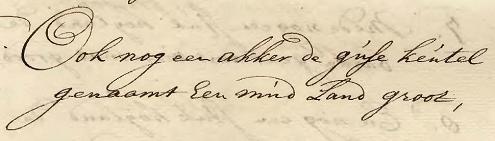 Ook nog een akker de güse keutel
genaamt Een mind Land groot,